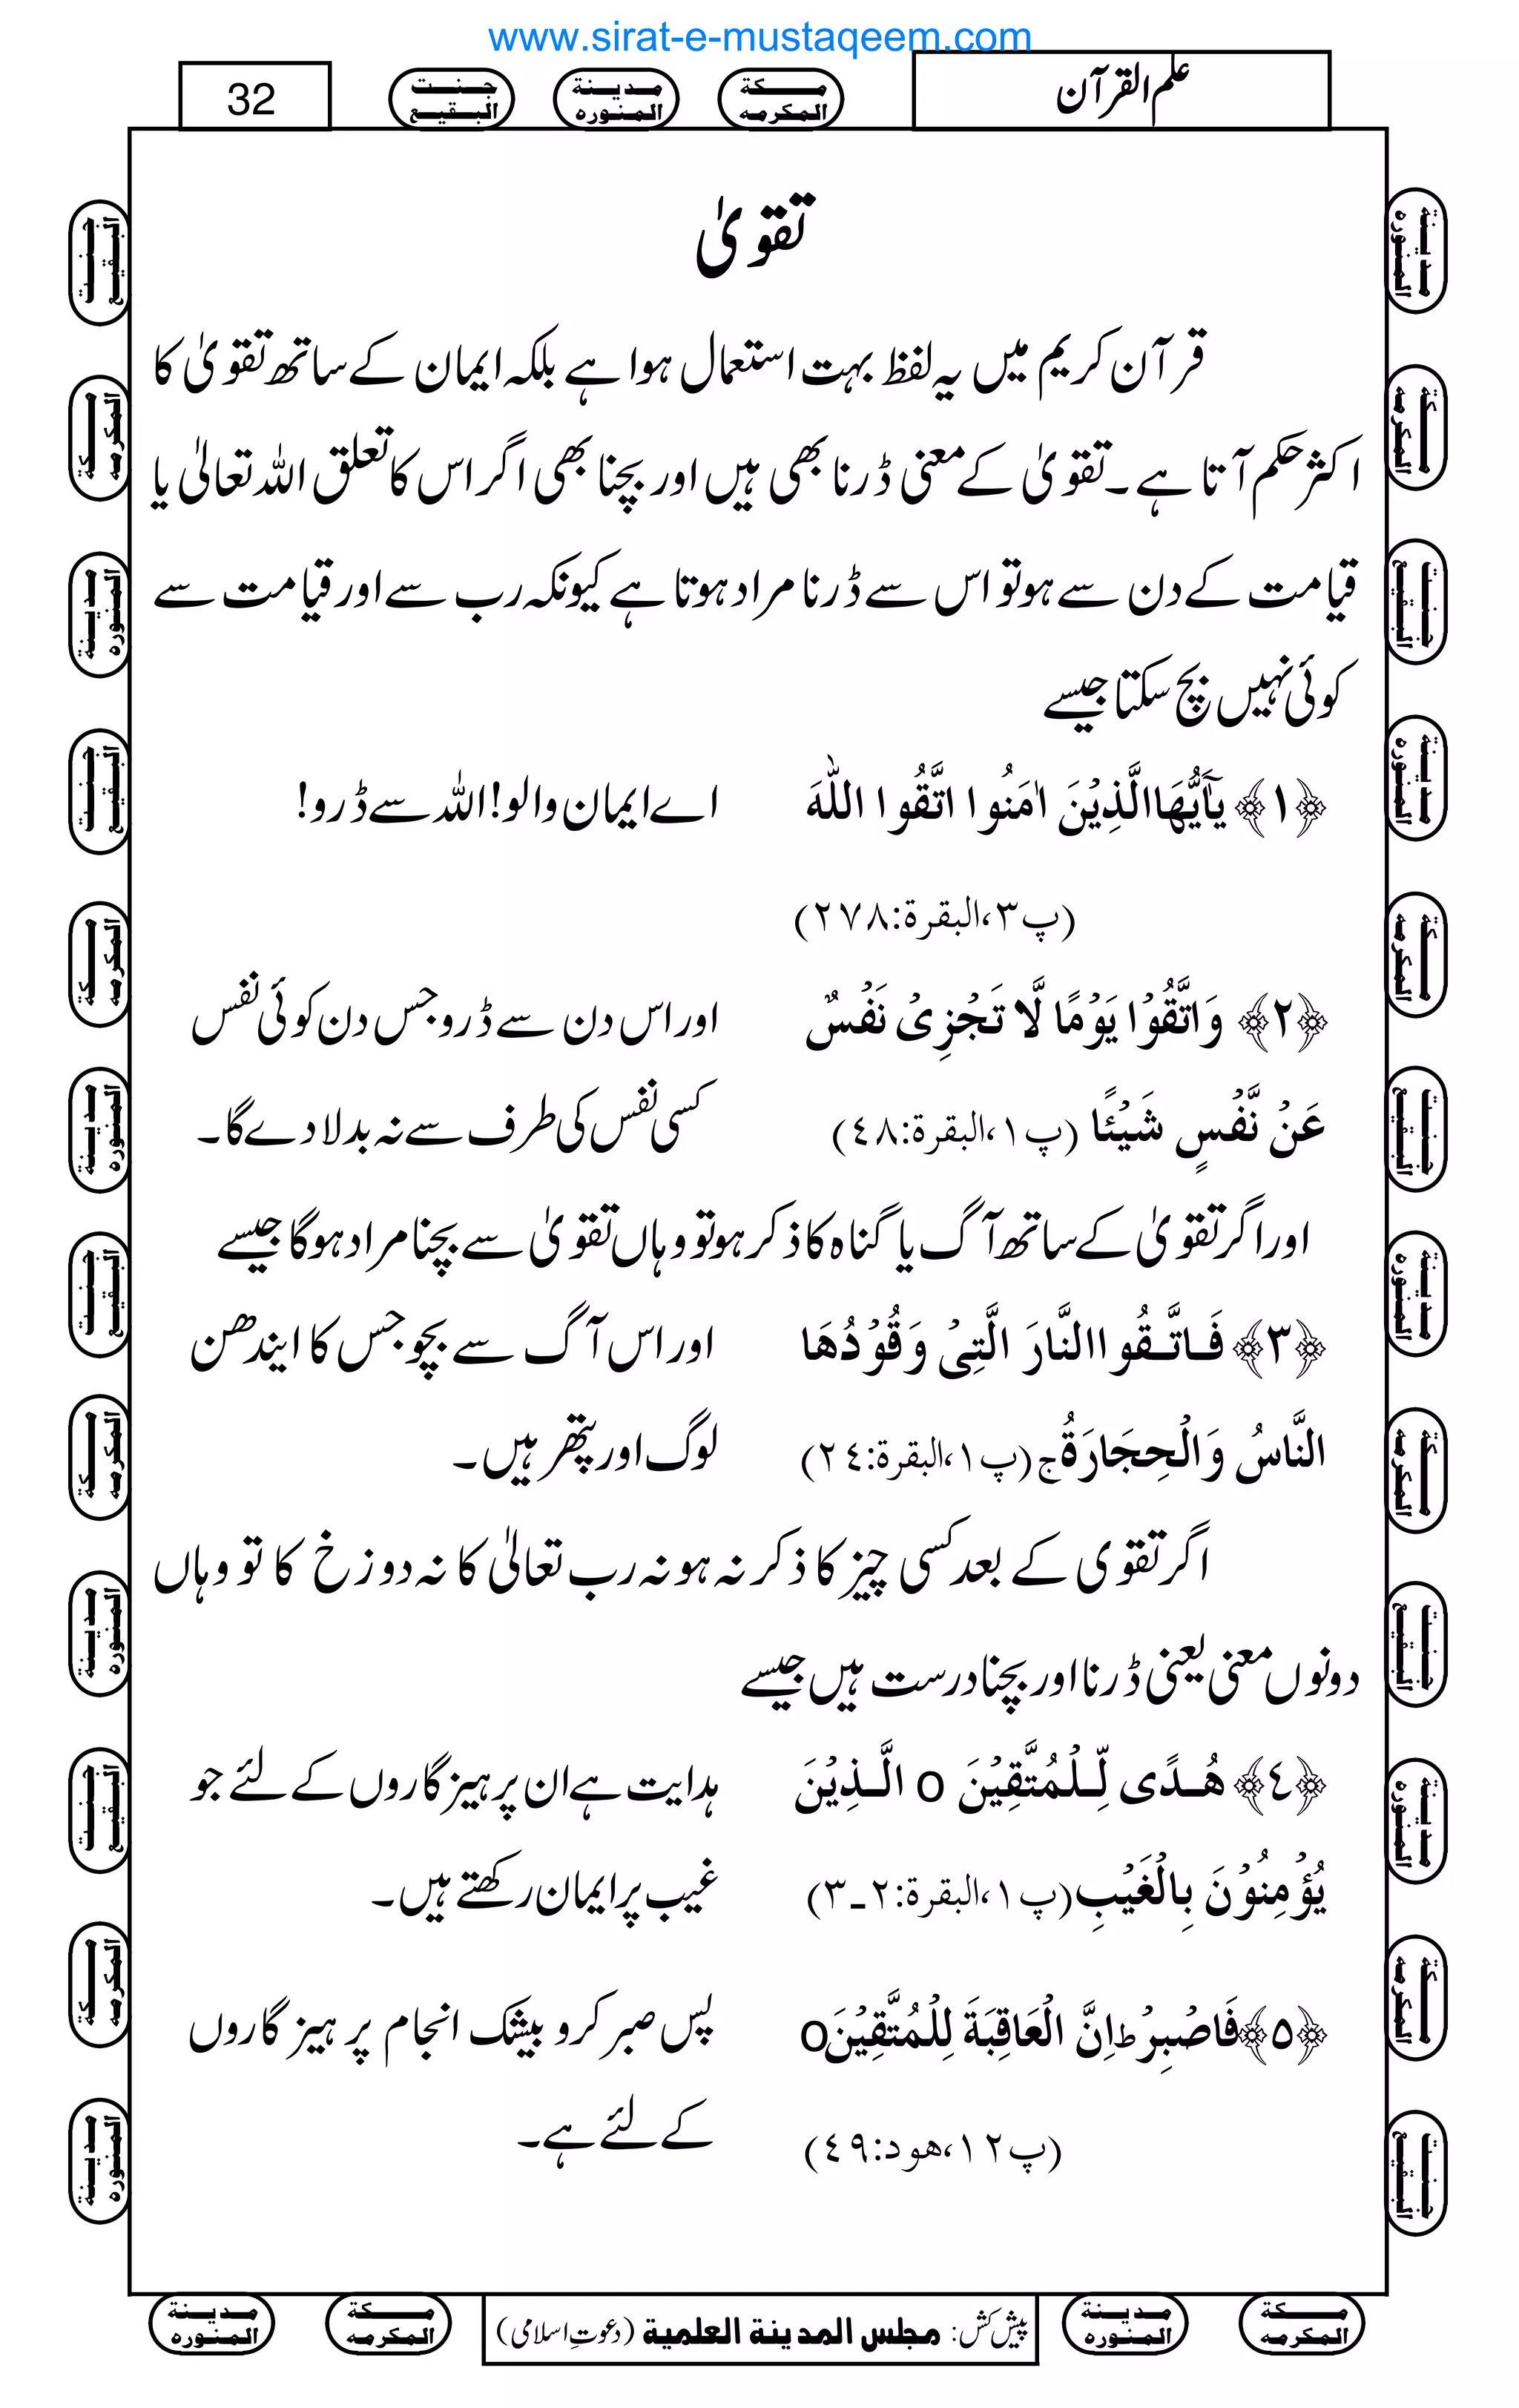 www.sirat-e-mustaqeem.com
علم القرآن
مكة المكرمه
مدينة المنوره
جنت البقيع
32
تقویٰ
قرآن کریم میں یہ لفظ بہت استعمال ہوا ہے بلکہ ایمان کے ساتھ تقویٰ کا
اکثر حکم آتا ہے۔ تقویٰ کے معنی ڈرنا بھی ہیں اور بچنا بھی اگر اس کا تعلق اللہ تعالیٰ یا
قیامت کے دن سے ہو تو اس سے ڈرنا مراد ہوتا ہے کیونکہ رب سے اور قیامت سے
کوئی نہیں بچ سکتا جیسے
﴿۱﴾ یٰۤاَیُّهَا الَّذِیْنَ اٰمَنُوا اتَّقُوا اللّٰهَ اے ایمان والو! اللہ سے ڈرو!
(پ۳،البقرة:۲۷۸)
﴿۲﴾ وَاتَّقُوْا یَوْمًا لَّا تَجْزِیْ نَفْسٌ اور اس دن سے ڈرو جس دن کوئی نفس
عَنْ نَّفْسٍ شَیْئًا (پ۱،البقرة:٤٨) کسی نفس کی طرف سے نہ بدلا دے گا۔
اور اگر تقویٰ کے ساتھ آگ یا گناہ کا ذکر ہو تو وہاں تقویٰ سے بچنا مراد ہوگا جیسے
﴿۳﴾ فَاتَّقُوا النَّارَ الَّتِیْ وَقُوْدُهَا اور اس آگ سے بچو جس کا ایندھن
النَّاسُ وَالْحِجَارَةُ ج (پ۱،البقرة:٢٤) لوگ اور پتھر ہیں۔
اگر تقوی کے بعد کسی چیز کا ذکر نہ ہو نہ رب تعالیٰ کا نہ دوزخ کا تو وہاں
دونوں معنی یعنی ڈرنا اور بچنا درست ہیں جیسے
﴿٤﴾ هُدًی لِّلْمُتَّقِیْنَ o الَّذِیْنَ ہدایت ہے ان پرہیز گاروں کے لئے جو
یُؤْمِنُوْنَ بِالْغَیْبِ (پ۱،البقرة:۲۔۳) غیب پر ایمان رکھتے ہیں۔
﴿٥﴾ فَاصْبِرْ ط اِنَّ الْعَاقِبَةَ لِلْمُتَّقِیْنَ o پس صبر کرو بیشک انجام پرہیز گاروں
(پ۱۲،هود:٤٩) کے لئے ہے۔
مكة المكرمه
مدينة المنوره
پیش کش: مجلس المدینة العلمیة (دعوتِ اسلامی)
مكة المكرمه
مدينة المنوره